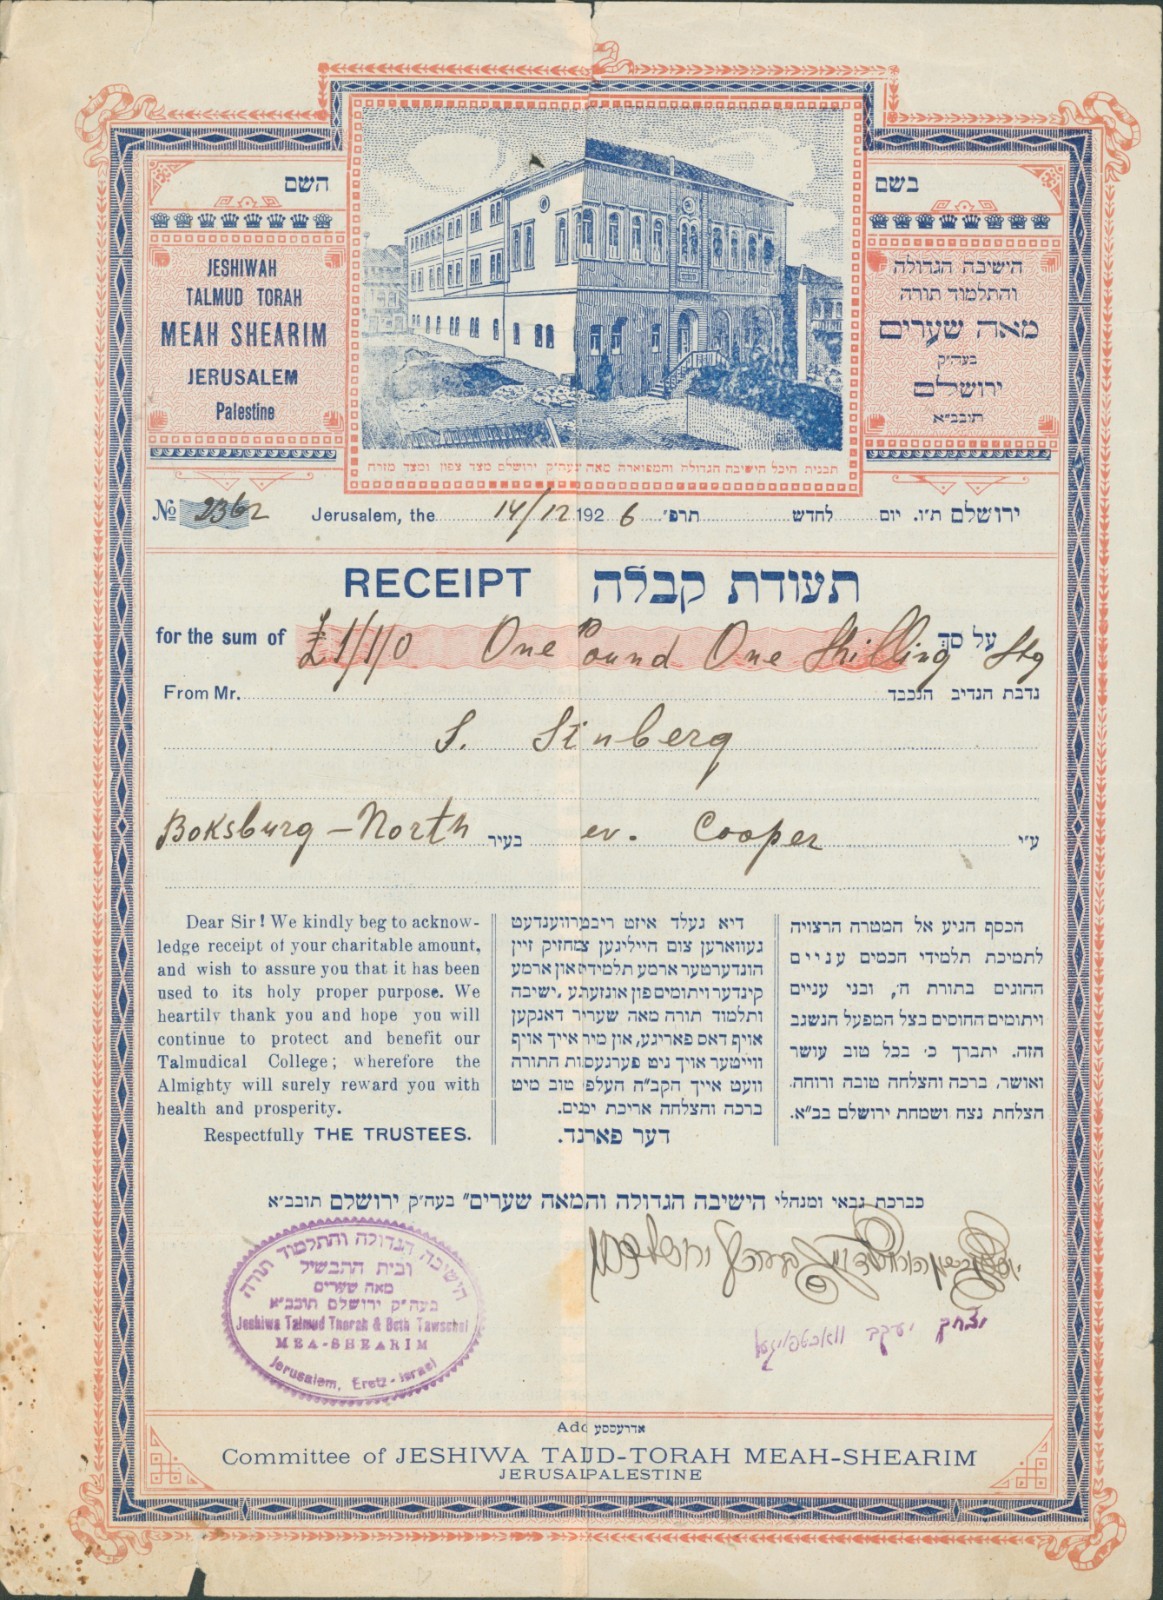 בשם
השם
JESHIWAH
TALMUD TORAH
MEAH SHEARIM
JERUSALEM
Palestine
הישיבה הגדולה
והתלמוד תורה
מאה שערים
בעה״ק
ירושלם
תובב״א
תבנית היכל הישיבה הגדולה והמפוארה מאה בעה״ק ירושלם מצד צפון ומצד מזרח
№ 2362 Jerusalem, the 14/12 1926 תרפ׳ לחדש יום ירושלם ת״ו.
RECEIPT תעודת קבלה
for the sum of £1/1/0 One Pound One Shilling Stg על סך
From Mr. נדבת הנדיב הנכבד
S. Sinberg
Boksburg-North בעיר ev. Cooper ע״י
Dear Sir! We kindly beg to acknow-
ledge receipt of your charitable amount,
and wish to assure you that it has been
used to its holy proper purpose. We
heartily thank you and hope you will
continue to protect and benefit our
Talmudical College; wherefore the
Almighty will surely reward you with
health and prosperity.
Respectfully THE TRUSTEES.
דיא געלד איזט ריכטיג ווענדעט
געווארען צום הייליגען צמחזיק זיין
הונדערטער ארמע תלמידים און ארמע
קינדער ויתומים פון אונזערע ישיבה
ותלמוד תורה מאה שערים דאנקען
אויף דאס פאריגע, און מיר אייך אויף
ווייטער אויך ניט פערגעסען התורה
וועט אייך הקב״ה העלפען טוב מיט
ברכה והצלחה אריכת ימים.
דער פארנד.
הכסף הגיע אל המטרה הרצויה
לתמיכת תלמידי חכמים עניים
ההוגים בתורת ה׳, ובני עניים
ויתומים החוסים בצל המפעל הנשגב
הזה. יתברך כ׳ בכל טוב עושר
ואושר, ברכה והצלחה טובה ורוחה.
הצלחת נצח ושמחת ירושלם בב״א.
כברכת גבאי ומנהלי הישיבה הגדולה והמאה שערים״ בעה״ק ירושלם תובב״א
הישיבה הגדולה והתלמוד תורה
ובית התבשיל
מאה שערים
בעה״ק ירושלם תובב״א
Jeshiwa Talmud Thorah & Beth Tawschel
MEA-SHEARIM
Jerusalem, Eretz-Israel
יצחק יעקב וואכטפויגעל
Add אדרעססע
Committee of JESHIWA TAUD-TORAH MEAH-SHEARIM
JERUSALPALESTINE